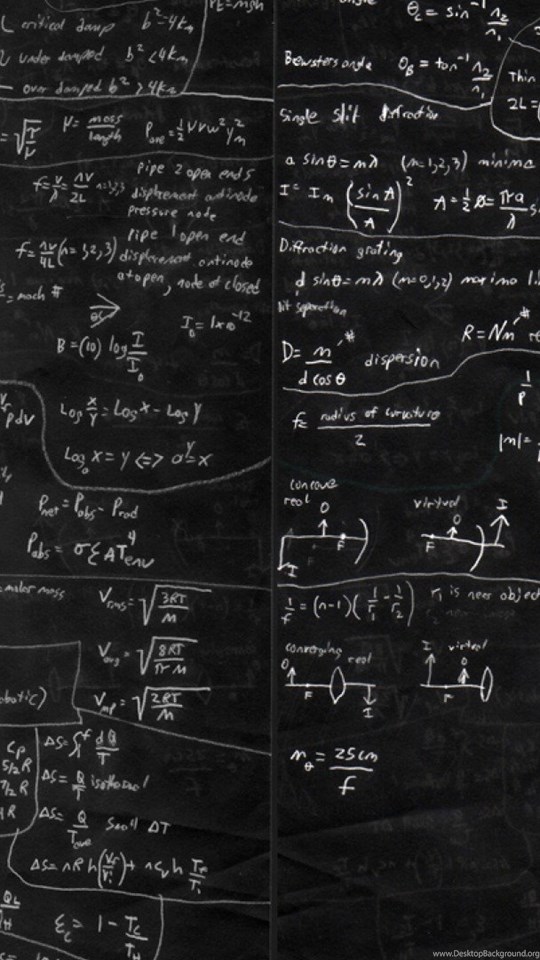 critical damp b² = 4km
under damped b² < 4km
over damped b² > 4km
= √(τ/μ) μ = mass/length Pave = ½ μvω²y²m
pipe 2 open ends
f = v/λ = nv/2L n=1,2,3 displacement antinode
pressure node
pipe 1 open end
f = nv/4L (n=1,2,3) displacement antinode
at open, node at closed
= mach #
I₀ = 1x10⁻¹²
B = (10) log I/I₀
pdV
Log x/y = Log x - Log y
Logₐ x = y <=> a^y = x
Pnet = Pabs - Prad
Pabs = σεAT⁴env
molar mass
Vrms = √(3RT/M)
Vavg = √(8RT/πM)
Vmp = √(2RT/M)
Cp
5/2 R
7/2 R
ΔS = ∫ dQ/T
ΔS = Q/T isothermal
ΔS = Q/Tave small ΔT
ΔS = nR ln(Vf/Vi) + nCv ln Tf/Ti
QL
εc = 1 - Tc/TH
angle
θc = sin⁻¹ n₂/n₁
Brewsters angle θB = tan⁻¹ n₂/n₁
Thin
2L =
Single slit diffraction
a sinθ = mλ (m=1,2,3) minima
I = Im (sin A / A)² A = ½ø = πa/λ
Diffraction grating
d sinθ = mλ (m=0,1,2) maxima
slit separation
R = Nm
D = m / d cos θ dispersion
f = radius of curvature / 2
1/p
|m| =
concave
real virtual
O O I
F F
I
1/f = (n-1)(1/r₁ - 1/r₂) r₁ is near object
converging real virtual
O I O
F F
I
mθ = 25cm / f
www.DesktopBackground.org